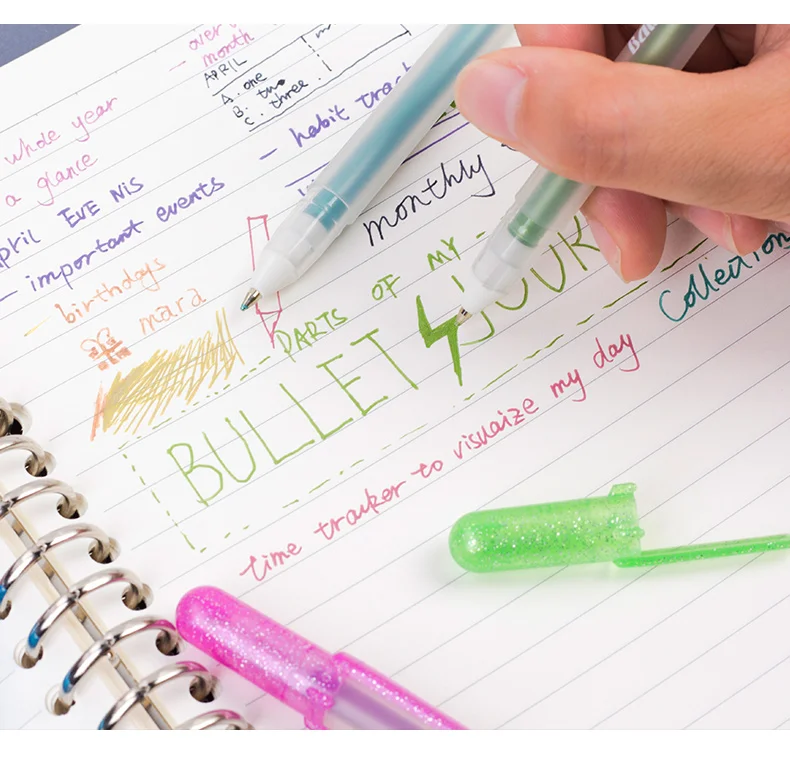 over
month
APRIL
A. one
B. two
C. three.
whole year
a glance
habit track
EVE NIS
- important events
monthly
- birthdays
mara
PARTS OF MY -
BULLET JOUR
Collection
time tracker to visuaize my day